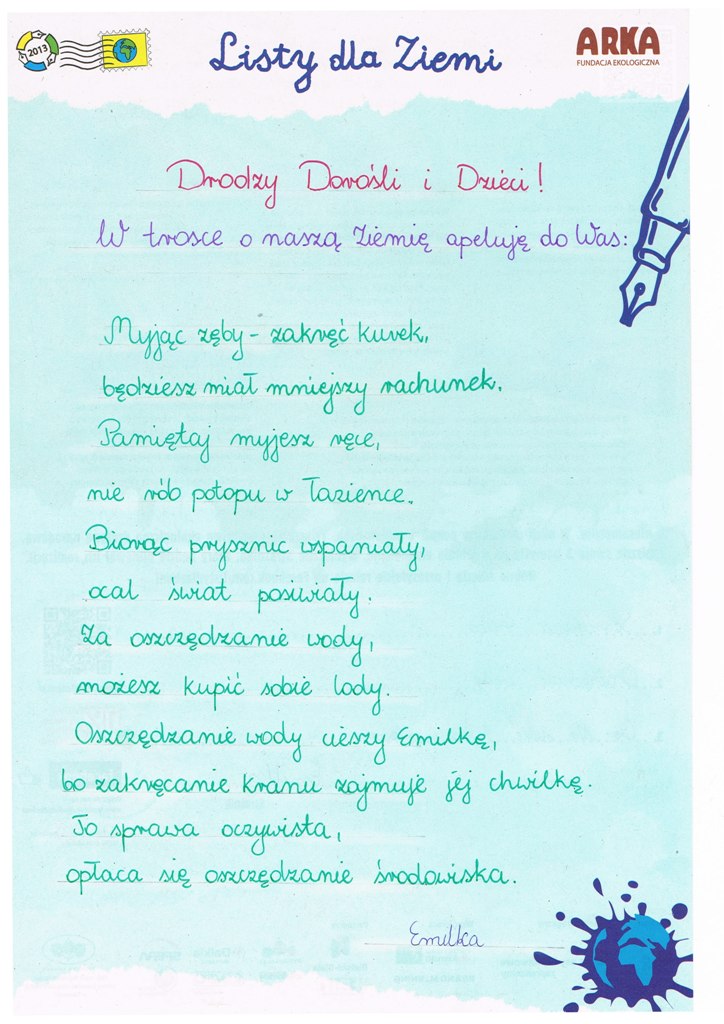 2013
Listy dla Ziemi
ARKA
FUNDACJA EKOLOGICZNA
Drodzy Dorośli i Dzieci!
W trosce o naszą Ziemię apeluję do Was:
Myjąc zęby - zakręć kurek,
będziesz miał mniejszy rachunek.
Pamiętaj myjesz ręce,
nie rób potopu w łazience.
Biorąc prysznic wspaniały,
ocal świat
Za oszczędzanie wody,
możesz kupić sobie lody.
Oszczędzanie wody cieszy Emilkę,
bo zakręcanie kranu zajmuje jej chwilkę.
To sprawa oczywista,
opłaca się oszczędzanie środowiska.
Emilka